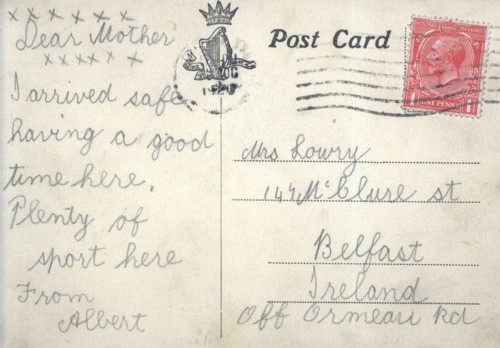 x x x x x x
Dear Mother
x x x x x x
I arrived safe
having a good
time here.
Plenty of
sport here
From
Albert
Post Card
ONE PENNY
Mrs Lowry
147 McClure st
Belfast
Ireland
Off Ormeau Rd